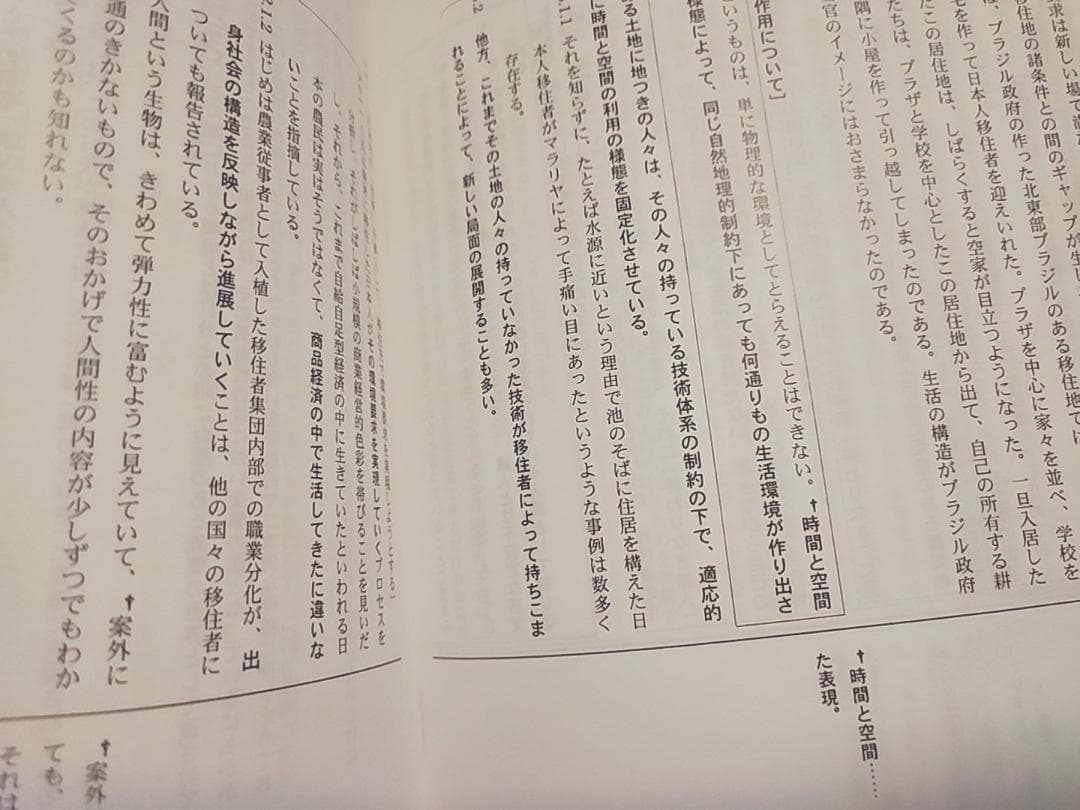 求は新しい場で満
移住地の諸条件との間のギャップが生じ
は、ブラジル政府の作った北東部ブラジルのある移住地では、
宅を作って日本人移住者を迎えいれた。プラザを中心に家々を並べ、学校を
たこの居住地は、しばらくすると空家が目立つようになった。一旦入居した
たちは、プラザと学校を中心としたこの居住地から出て、自己の所有する耕
隅に小屋を作って引っ越してしまったのである。生活の構造がブラジル政府
官のイメージにはおさまらなかったのである。
作用について]
というものは、単に物理的な環境としてとらえることはできない。✝時間と空間
様態によって、同じ自然地理的制約下にあっても何通りもの生活環境が作り出さ
る土地に地つきの人々は、その人々の持っている技術体系の制約の下で、適応的
に時間と空間の利用の様態を固定化させている。
1.1 それを知らずに、たとえば水源に近いという理由で池のそばに住居を構えた日
本人移住者がマラリヤによって手痛い目にあったというような事例は数多く
存在する。
.2 他方、これまでその土地の人々の持っていなかった技術が移住者によって持ちこま
れることによって、新しい局面の展開することも多い。
✝時間と空間……
た表現。
人がその環境要求を実現していくプロセスを
それがしばしば小規模の商業経営的色彩を帯びることを見いだ
し、それから、これまで自給自足型経済の中に生きていたといわれる日
本の農民は実はそうではなくて、商品経済の中で生活してきたに違いな
いことを指摘している。
2.1.2 はじめは農業従事者として入植した移住者集団内部での職業分化が、出
身社会の構造を反映しながら進展していくことは、他の国々の移住者に
ついても報告されている。
人間という生物は、きわめて弾力性に富むように見えていて、✝案外に
通のきかないもので、そのおかげで人間性の内容が少しずつでもわか
くるのかも知れない。
✝案外
ても、
それは